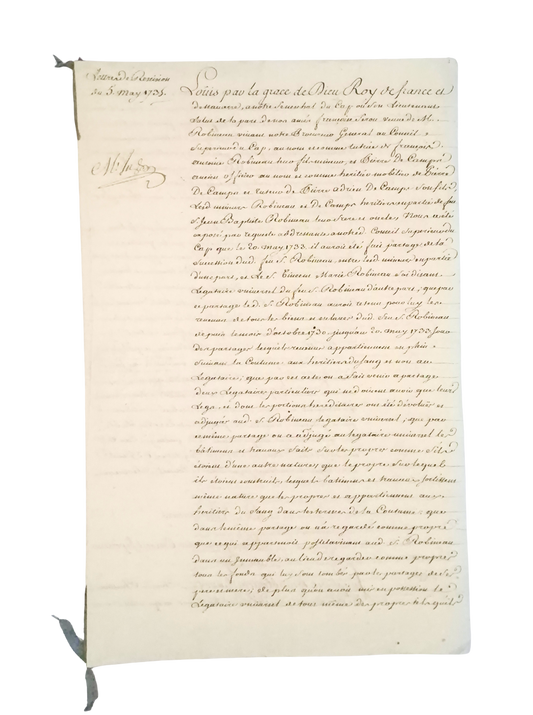 Lettres de Rescision
du 5. may 1735.
Louis par la grace de Dieu Roy de france et
de navarre, a notre Senechal du Cap ou son Lieutenant
Salut de la part de nos amés françoise veuve de M.
Robineau vivant notre Procureur General au Conseil
Superieur du Cap, au nom et comme tutrice de françois
antoine Robineau leur fils mineur, et Pierre de Camps
ancien officier au nom et comme heritier mobilier de Pierre
De Camps et tuteur de Pierre adrien De Camps son fils
Lesd. mineurs Robineau et De Camps heritiers en partie de feu
S. Jean Baptiste Robineau leur frere et oncle, Nous a eté
exposé par requete adressante a notred. Conseil Superieur du
Cap que le 20. may 1733. il auroit eté fait partage de la
Succession dud. feu S. Robineau, entre lesd. mineurs en partie
d'une part, et Le S. Vincent Marie Robineau soi disant
Legataire universel du feu S. Robineau d'autre part, que par
ce partage le d. S. Robineau auroit retenu pour luy les
revenus de tous les biens et dud. feu S. Robineau
depuis le mois d'octobre 1730. jusqu'au 20. may 1733. jour
des partages lesquels revenus appartiennent en plein
suivant la Coutume aux heritiers du sang et non au
Legataire, que par ces actes on a fait venir a partage
deux Legataires particuliers qui ne doivent avoir que leurs
Legs, et dont les portions hereditaires ont eté dévolues et
adjugées aud. S. Robineau legataire universel; que par
ce même partage on a adjugé au legataire universel les
bâtimens et travaux faits sur les propres comme s'ils
étoient d'une autre nature que le propre sur lequel
ils étoient construits, lesquels batimens et travaux
même nature que les propres et appartiennent aux
heritiers du sang dans les termes de la Coutume; que
dans le même partage on n'a regardé comme propre
que ce qui appartenoit aud. S. Robineau
dans un Immeuble, au lieu de regarder comme propre
tous les fonds qui luy sont tombés par les partages de ses
pere et mere; de plus qu'on auroit mis en possession le
Legataire universel de tous mêmes des propres lesquels